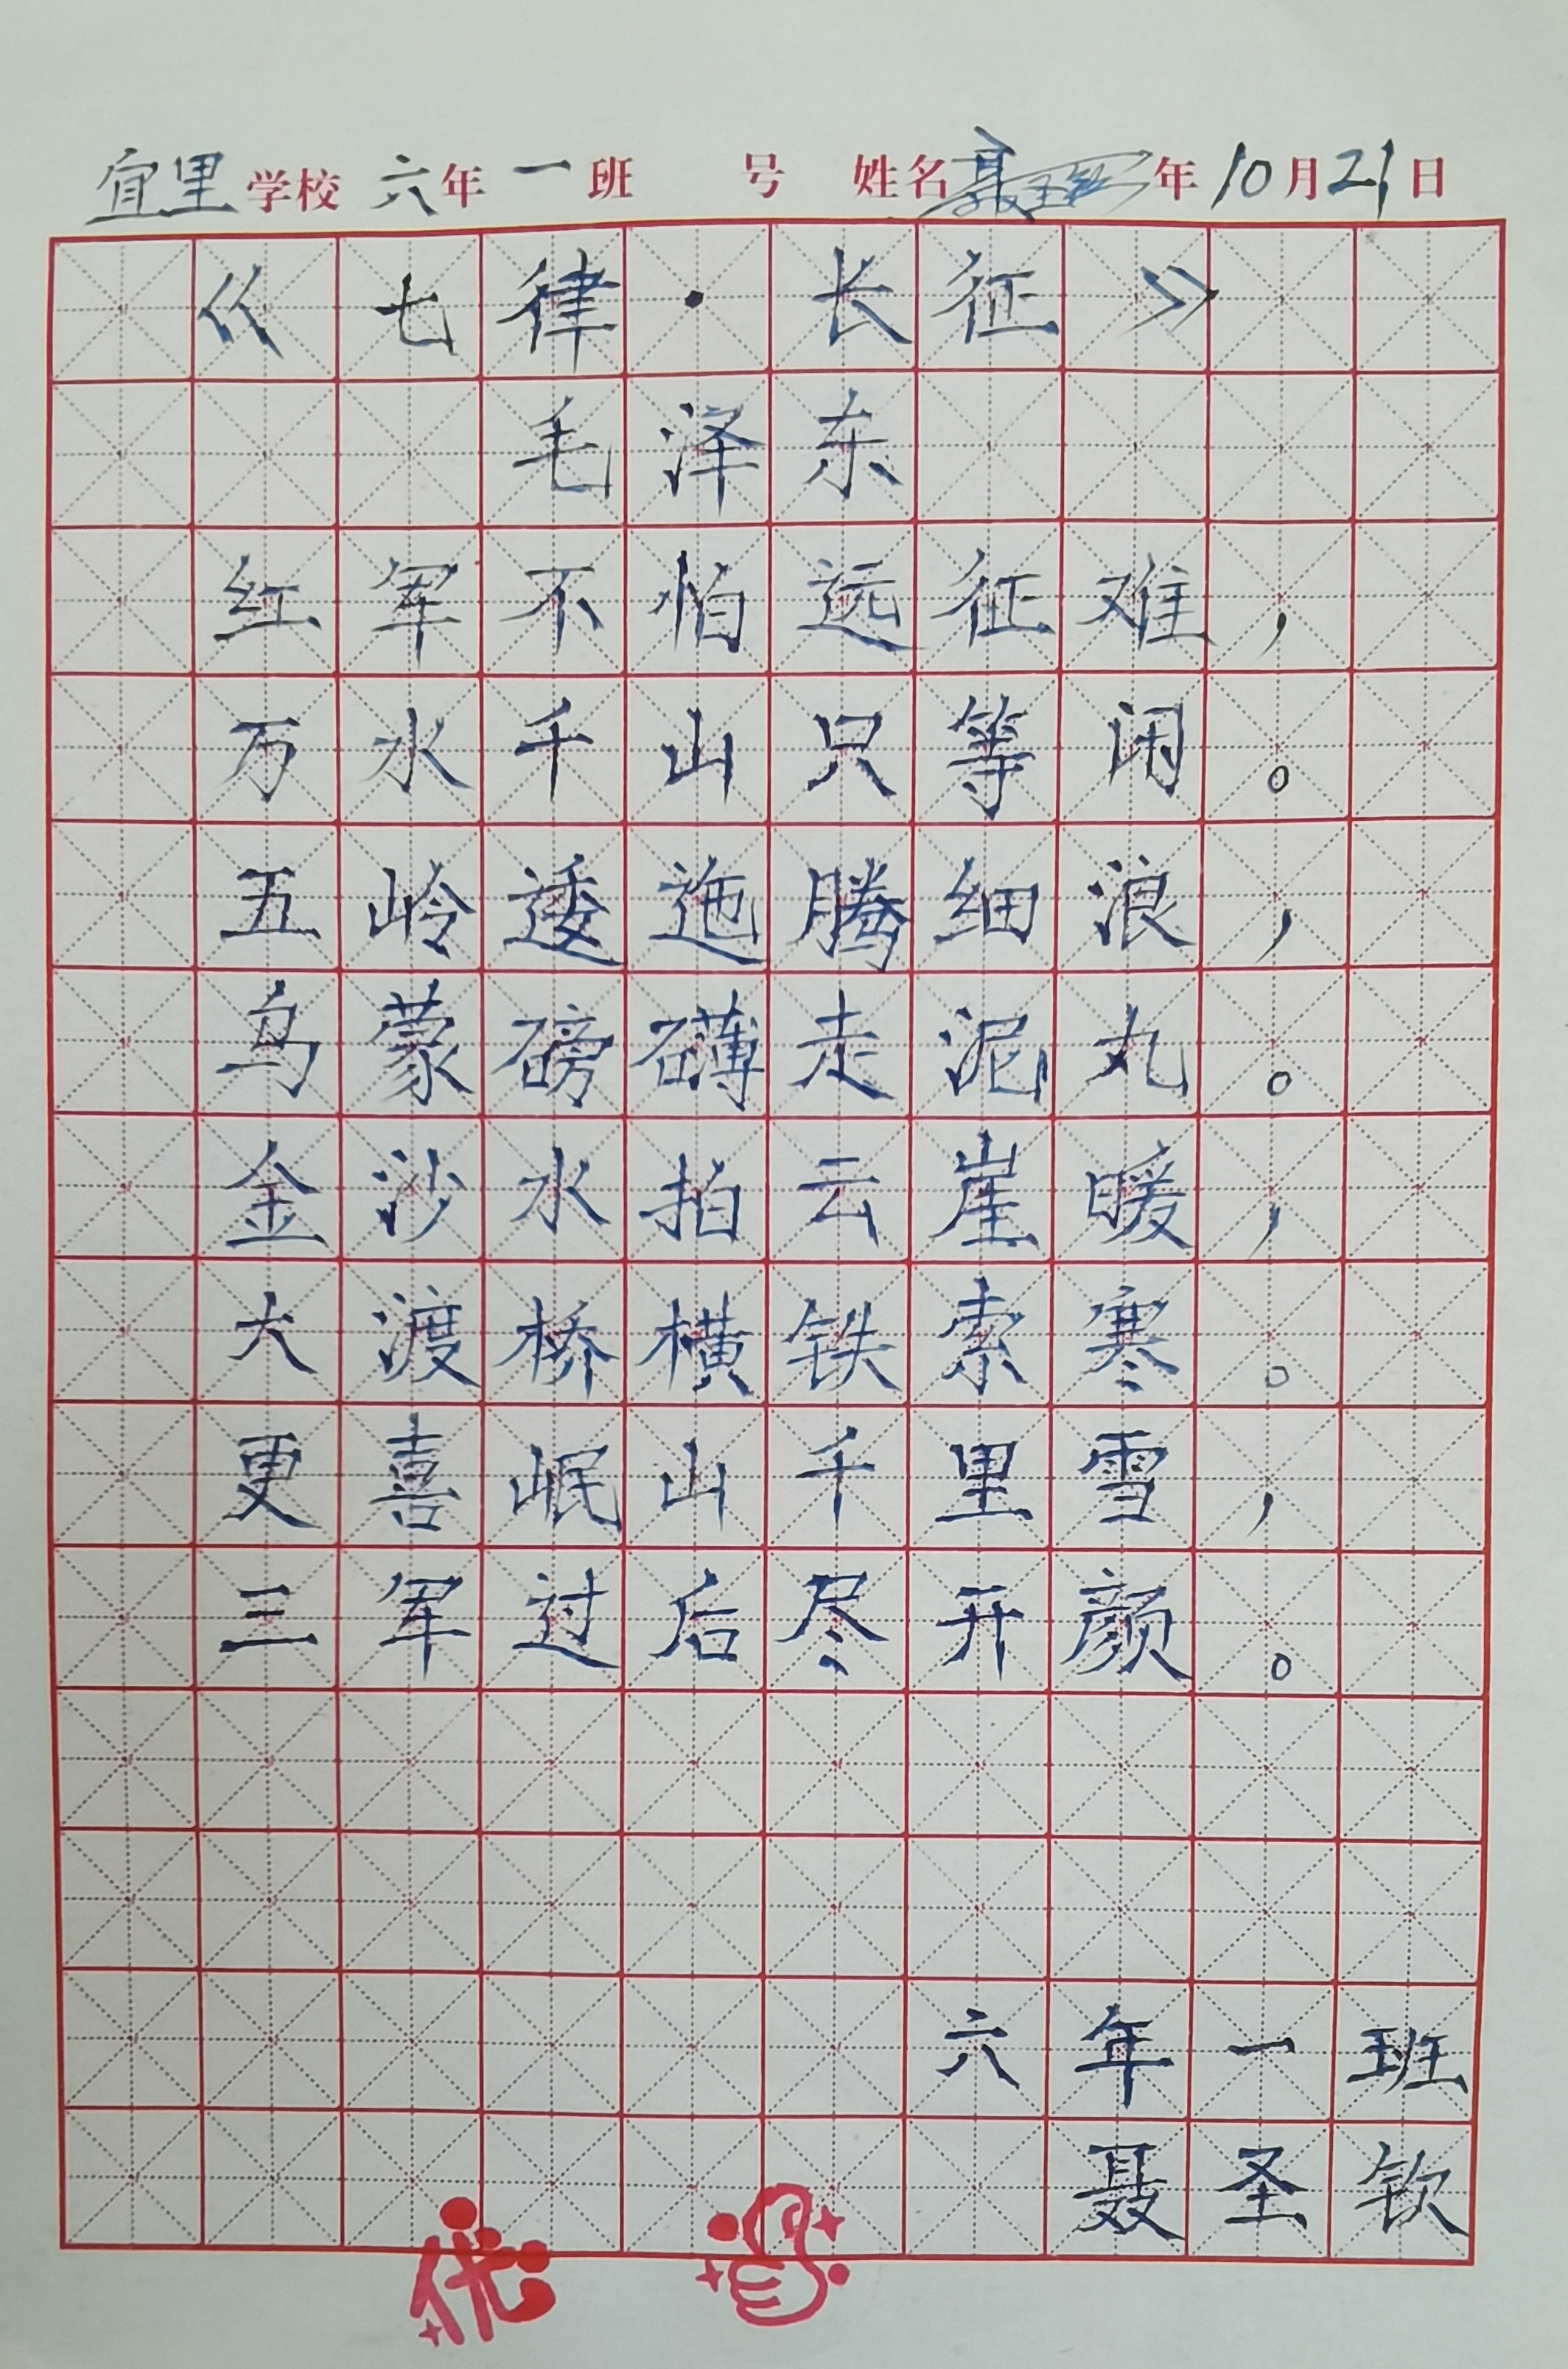 宜里学校 六年 一 班 号 姓名 聂圣钦 年 10月21日
《七律·长征》
毛泽东
红军不怕远征难，
万水千山只等闲。
五岭逶迤腾细浪，
乌蒙磅礴走泥丸。
金沙水拍云崖暖，
大渡桥横铁索寒。
更喜岷山千里雪，
三军过后尽开颜。
六年一班
聂圣钦
优